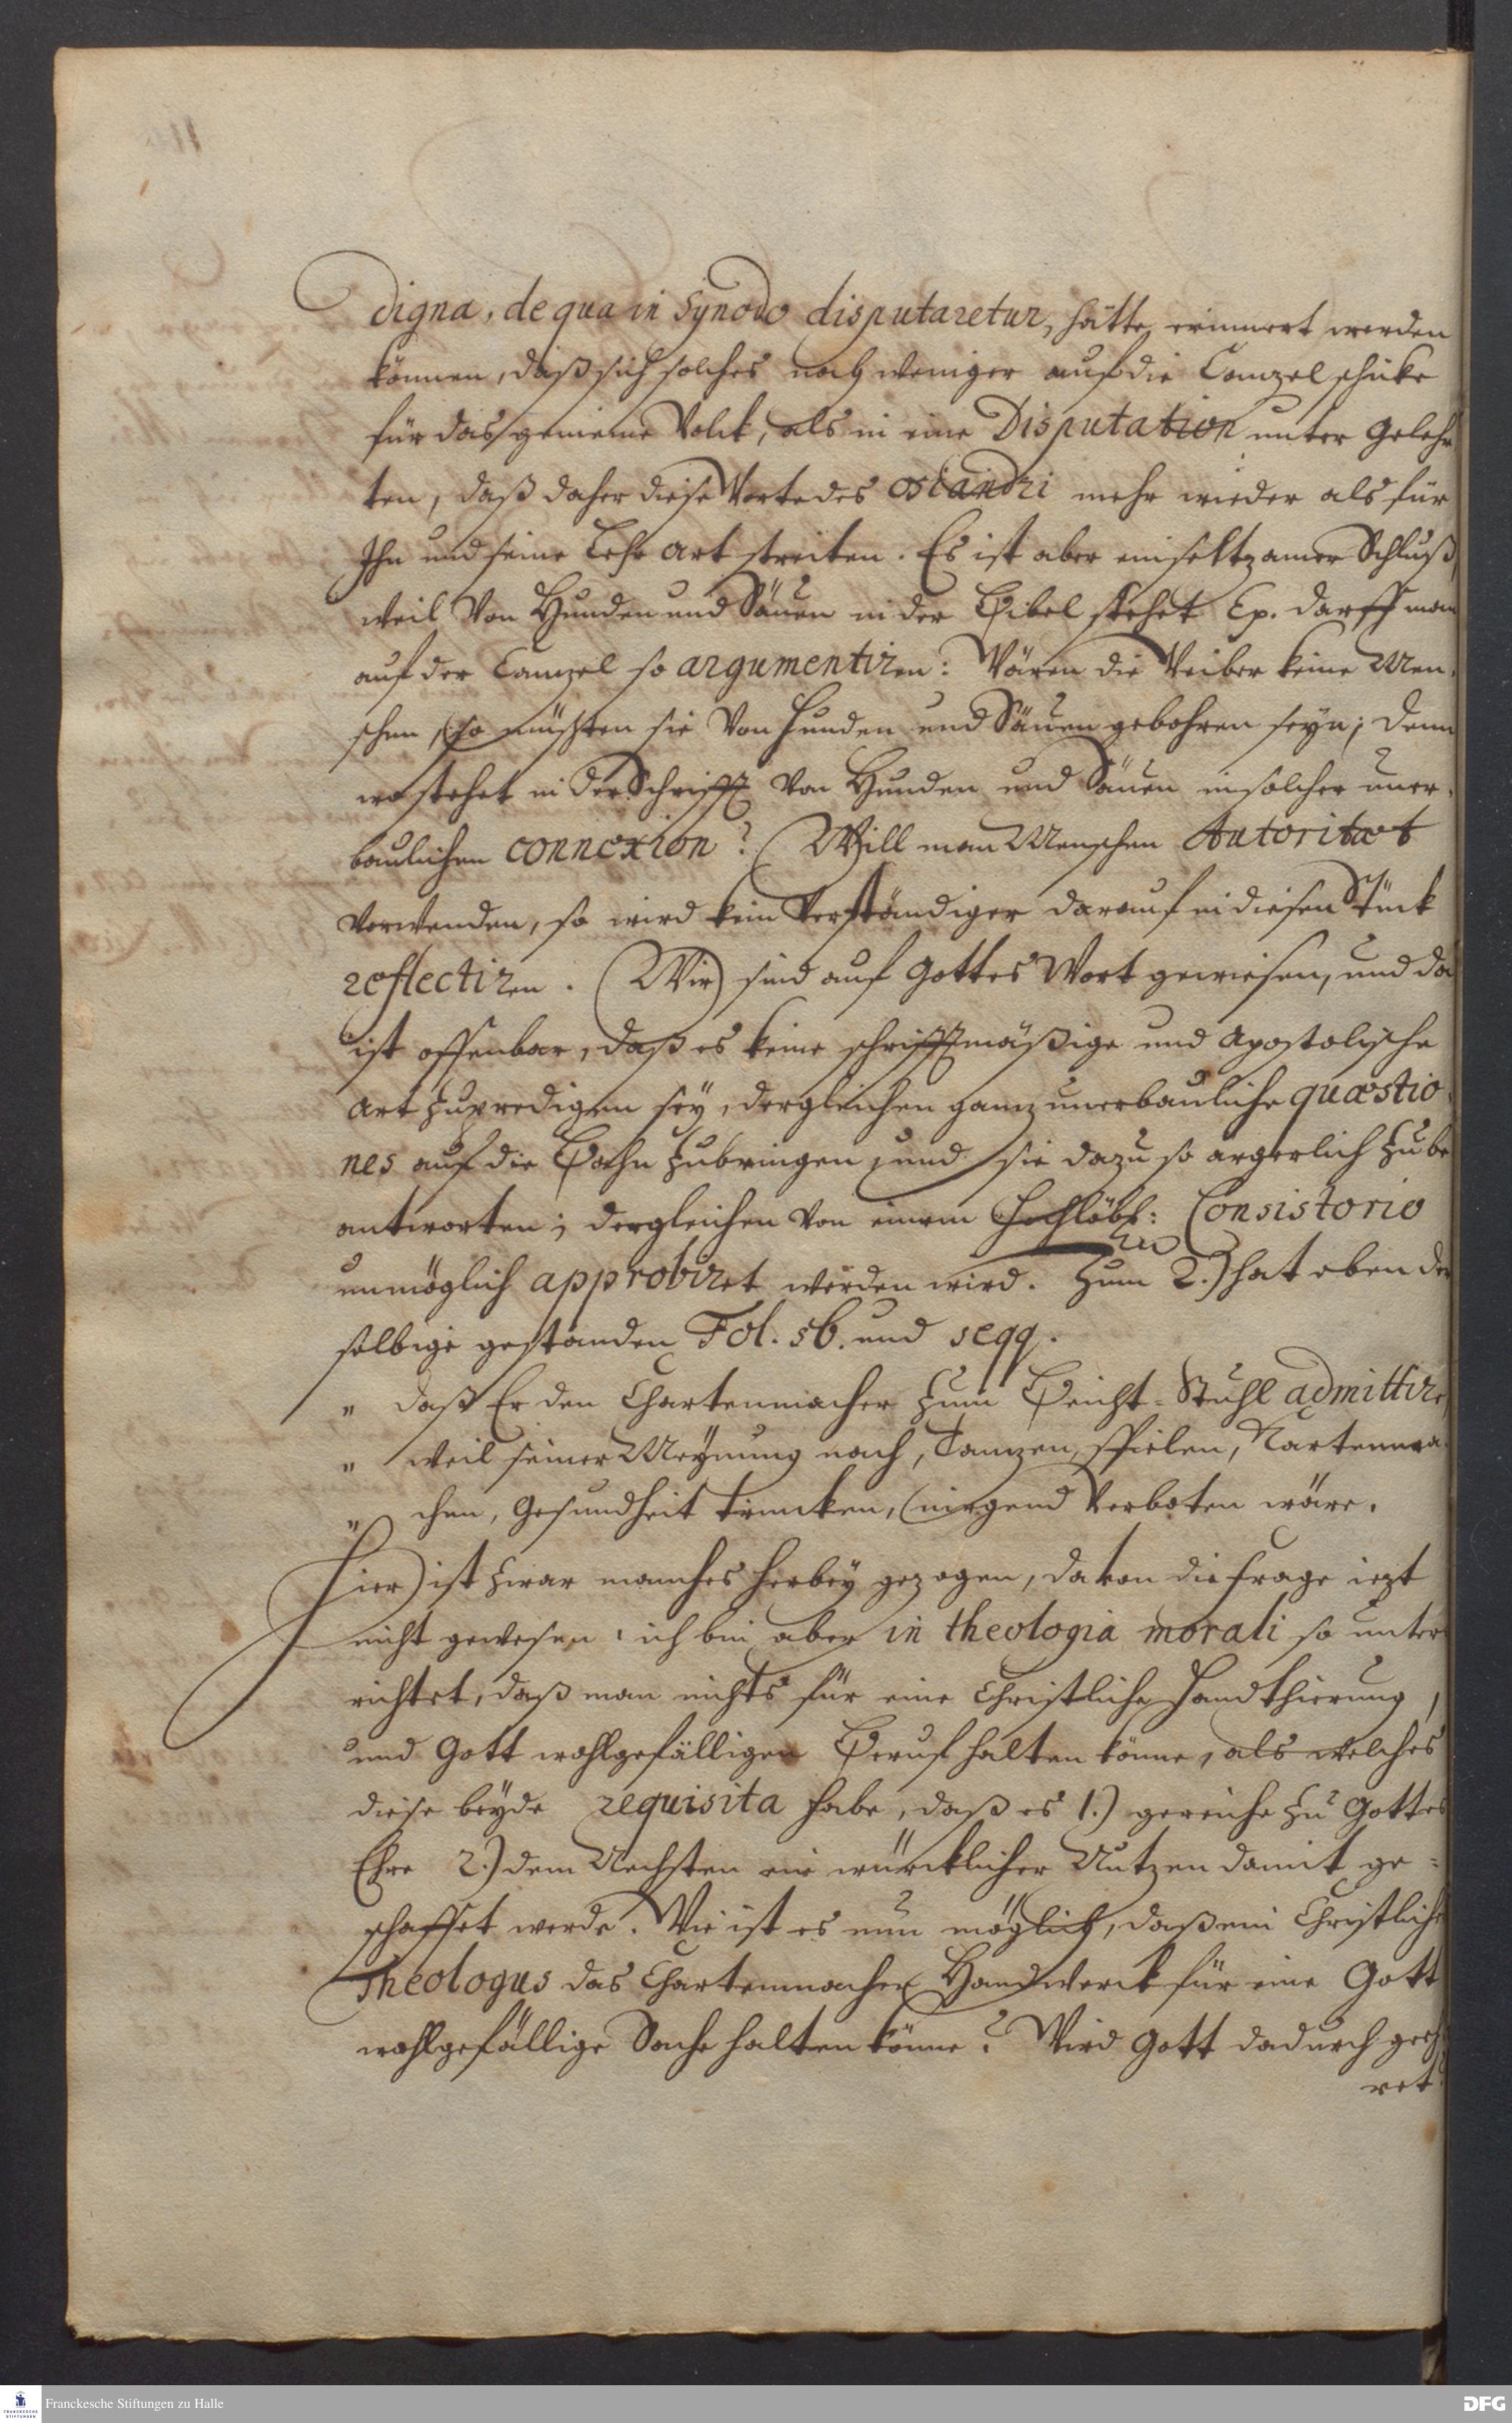 digna, de qua in Synodo disputaretur, hätte erinnert werden
können, daß sich solches noch weniger auf die Cantzel schicke
für das gemeine Volck, als in eine Disputation unter Gelehr
ten, daß daher diese Worte des Osiandri mehr wieder als für
Ihn und seine Lehr Art streiten. Es ist aber ein seltzamer Schluß,
weil Von Hunden und Säuen in der Bibel stehet Ep. darff man
auf der Cantzel so argumentiren: Wären die Weiber keine Men-
schen, so müßten sie Von Hunden und Säuen gebohren seyn; denn
wo stehet in der Schrifft Von Hunden und Säuen in solcher uner-
baulichen connexion? Will man Menschen Autoritæt
Vorwenden, so wird kein Verständiger darauf in diesen Stück
reflectiren. Wir sind auf Gottes Wort gewiesen, und da
ist offenbar, daß es keine schrifftmäßige und Apostolische
Art zu predigen sey, dergleichen gantz unerbauliche quæstio-
nes auf die Bahn zubringen, und sie dazu so ärgerlich zube
antworten; dergleichen Von einem Hochlöbl: Consistorio
unmöglich approbiret werden wird. Zum 2.) hat eben der
selbige gestanden Fol. 5b. und seqq.
" daß Er den Chartenmacher zum Beicht-Stuhl admittire,
" weil seiner Meynung nach, Tantzen, Spielen, Kartenma-
" chen, Gesundheit trincken, nirgend Verboten wäre.
Hier ist zwar manches herbey gezogen, davon die Frage iezt
nicht gewesen: ich bin aber in theologia morali so unter
richtet, daß man nichts für eine Christliche Handthierung,
und Gott wohlgefälligen Beruf halten könne, als welches
diese beyde requisita habe, daß es 1.) gereiche zu Gottes
Ehre 2.) dem Nechsten ein würcklicher Nutzen damit ge-
schaffet werde. Wie ist es nun möglich, daß ein Christliche
Theologus das Chartenmacher Handwerck für eine Gott
wohlgefällige Sache halten könne? Wird Gott dadurch geeh
ret
Franckesche Stiftungen zu Halle
DFG